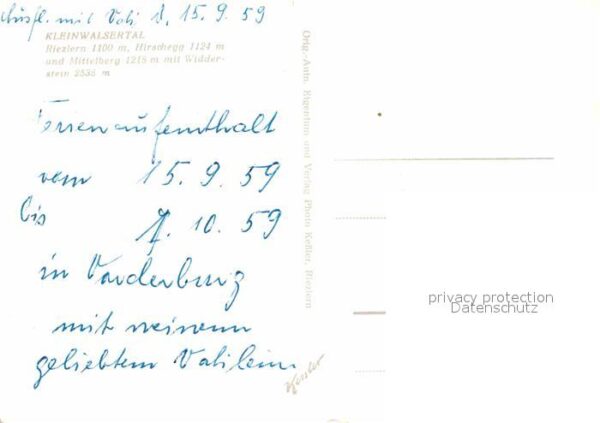 Ausfl. mit Vati d. 15.9.59
KLEINWALSERTAL
Riezlern 1100 m, Hirschegg 1124 m
und Mittelberg 1218 m mit Widder-
stein 2536 m
Ferienaufenthalt
vom 15.9.59
bis 7.10.59
in Vorderburg
mit meinem
geliebtem Vatilein
Orig.-Aufn. Eigentum und Verlag Photo Keßler, Riezlern
Kessler
privacy protection
Datenschutz